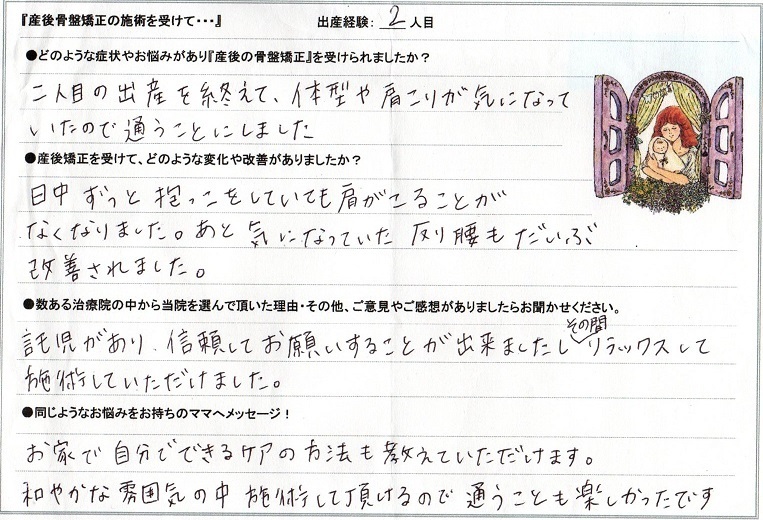 『産後骨盤矯正の施術を受けて・・・』　出産経験：2人目
●どのような症状やお悩みがあり『産後の骨盤矯正』を受けられましたか？
二人目の出産を終えて、体型や肩こりが気になって
いたので通うことにしました
●産後矯正を受けて、どのような変化や改善がありましたか？
日中ずっと抱っこをしていても肩がこることが
なくなりました。あと気になっていた反り腰もだいぶ
改善されました。
●数ある治療院の中から当院を選んで頂いた理由・その他、ご意見やご感想がありましたらお聞かせください。
託児があり、信頼してお願いすることが出来ましたしその間リラックスして
施術していただけました。
●同じようなお悩みをお持ちのママへメッセージ！
お家で自分でできるケアの方法も教えていただけます。
和やかな雰囲気の中施術して頂けるので通うことも楽しかったです